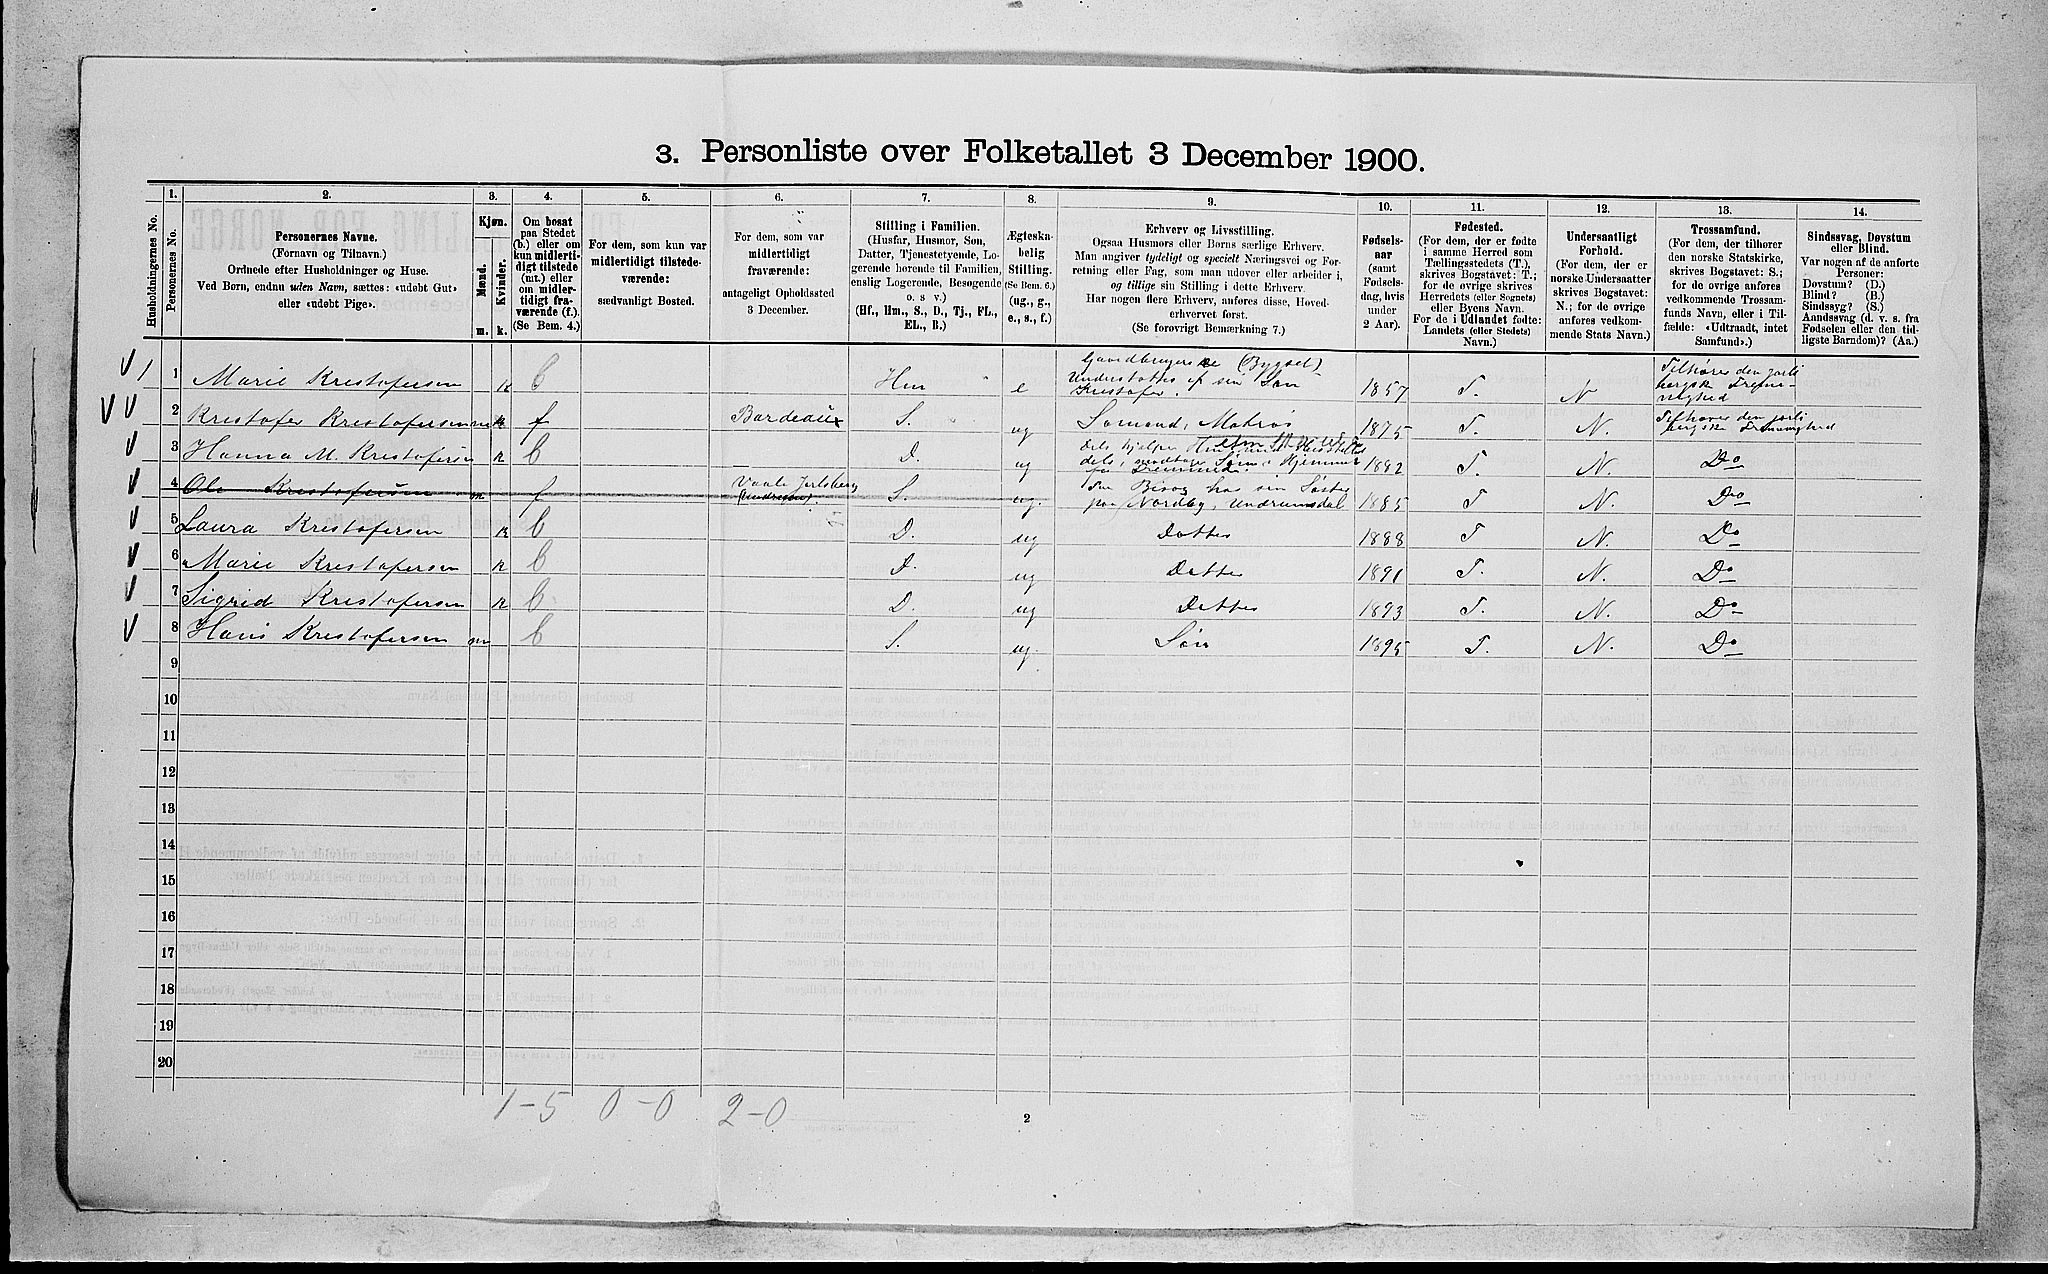 3. Personliste over Folketallet 3 December 1900.
1. 2. 3. 4. 5. 6. 7. 8. 9. 10. 11. 12. 13. 14.
Husholdningernes No.
Personernes No.
Personernes Navne.
(Fornavn og Tilnavn.)
Ordnede efter Husholdninger og Huse.
Ved Børn, endnu uden Navn, sættes: «udøbt Gut»
eller «udøbt Pige».
Kjøn.
Mænd.
Kvinder.
m. k.
Om bosat
paa Stedet
(b.) eller om
kun midlerti-
digt tilstede
(mt.) eller
om midler-
tidigt fra-
værende (f.).
(Se Bem. 4.)
For dem, som kun var
midlertidigt tilstede-
værende:
sædvanligt Bosted.
For dem, som var
midlertidigt
fraværende:
antageligt Opholdssted
3 December.
Stilling i Familien.
(Husfar, Husmor, Søn,
Datter, Tjenestetyende, Lo-
gerende hørende til Familien,
enslig Logerende, Besøgende
o. s. v.)
(Hf., Hm., S., D., Tj., FL.,
EL., B.)
Ægteska-
belig
Stilling.
(Se Bem. 6.)
(ug., g.,
e., s., f.)
Erhverv og Livsstilling.
Ogsaa Husmors eller Børns særlige Erhverv.
Man angiver tydeligt og specielt Næringsvei og For-
retning eller Fag, som man udover eller arbeider i,
og tillige sin Stilling i dette Erhverv.
Har nogen flere Erhverv, anføres disse, Hoved-
erhvervet først.
(Se forøvrigt Bemærkning 7.)
Fødsels-
aar
(samt
Fødsels-
dag, hvis
under
2 Aar).
Fødested.
(For dem, der er fødte
i samme Herred som
Tællingsstedets (T.),
skrives Bogstavet: T.;
for de øvrige skrives
Herredets (eller Sognets)
eller Byens Navn.
For de i Udlandet fødte:
Landets (eller Stedets)
Navn.)
Undersaatligt
Forhold.
(For dem, der er
norske Undersaatter
skrives Bogstavet:
N.; for de øvrige
anføres vedkom-
mende Stats Navn.)
Trossamfund.
(For dem, der tilhører
den norske Statskirke,
skrives Bogstavet: S.;
for de øvrige anføres
vedkommende Trossam-
funds Navn, eller i Til-
fælde: «Udtraadt, intet
Samfund».)
Sindssvag, Døvstum
eller Blind.
Var nogen af de anførte
Personer:
Døvstum? (D.)
Blind? (B.)
Sindssyg? (S.)
Aandssvag (d. v. s. fra
Fødselen eller den tid-
ligste Barndom)? (Aa.)
1 Marie Kristofersen k b Hm e Gaardbrugerske (Bygsel) Understøttes af sin Søn Kristofer. 1857 T. N Tilhører den jarlsbergske Frimenighed
2 Kristofer Kristofersen m f Bordeaux S. ug Sømand, Matros 1875 T. N. Tilhører den jarlsbergske Frimenighed
3 Hanna M. Kristofersen k b D. ug 1882 T. N. Do
4 Ole Kristofersen m f Vaale Jarlsberg S. ug. Paa Besøg hos sin Søster paa Nordby, Undrumsdal 1885 T N. Do
5 Laura Kristofersen k b D. ug Datter 1888 T N. Do
6 Marie Kristofersen k b D. ug Datter 1891 T. N. Do
7 Sigrid Kristofersen k b D. ug Datter 1893 T. N. Do
8 Hans Kristofersen m b S. ug. Søn 1895 T. N. Do
9
10
11
12
13
14
15
16
17
18
19
20
1-5 0-0 2-0
2